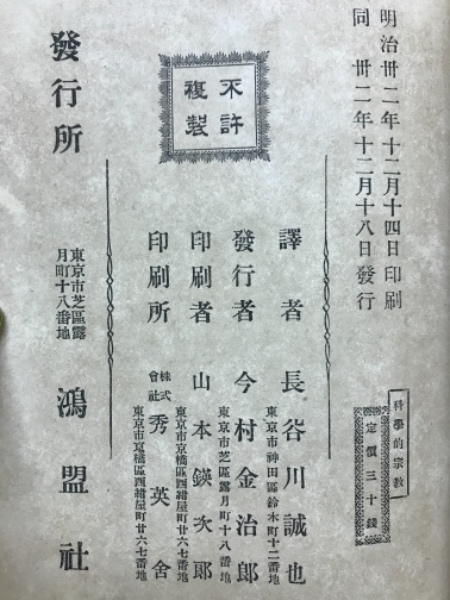 明治卅二年十二月十四日印刷
同 卅二年十二月十八日發行
科學的宗教
定價三十錢
不許
複製
譯者 長谷川誠也
東京市神田區鈴木町十二番地
發行者 今村金治郎
東京市芝區露月町十八番地
印刷者 山本鍈次郎
東京市京橋區西紺屋町廿六七番地
印刷所 株式會社 秀英舍
東京市京橋區西紺屋町廿六七番地
發行所 東京市芝區露月町十八番地 鴻盟社